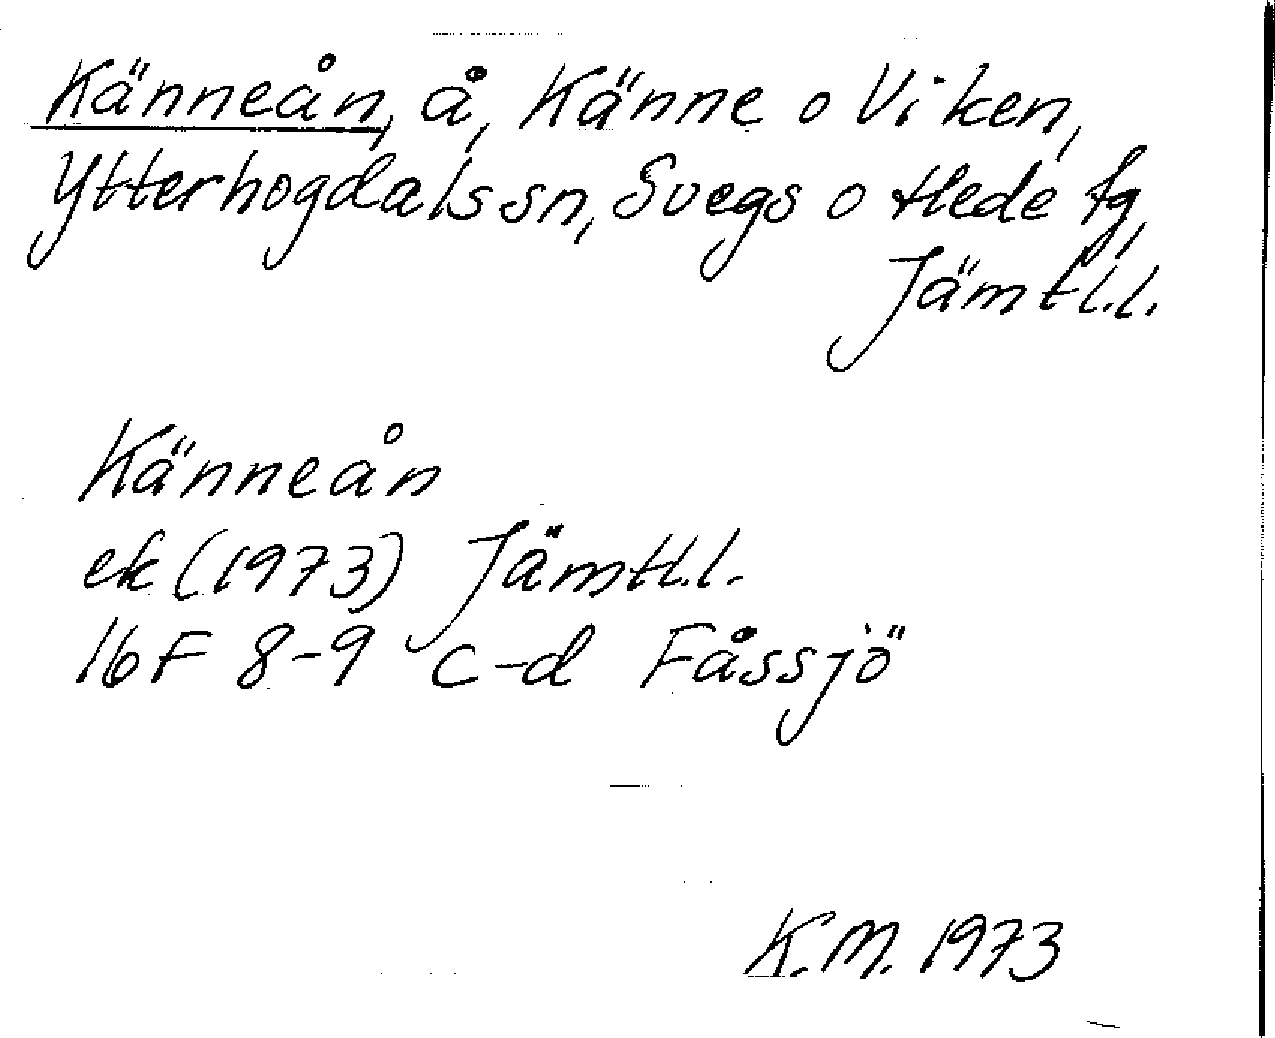 Känneån, å, Känne o Viken,
Ytterhogdals sn, Svegs o Hede tg,
Jämtl.l.
Känneån
ek (1973) Jämtl.l.
16F 8-9 c-d Fåssjö
K.M. 1973